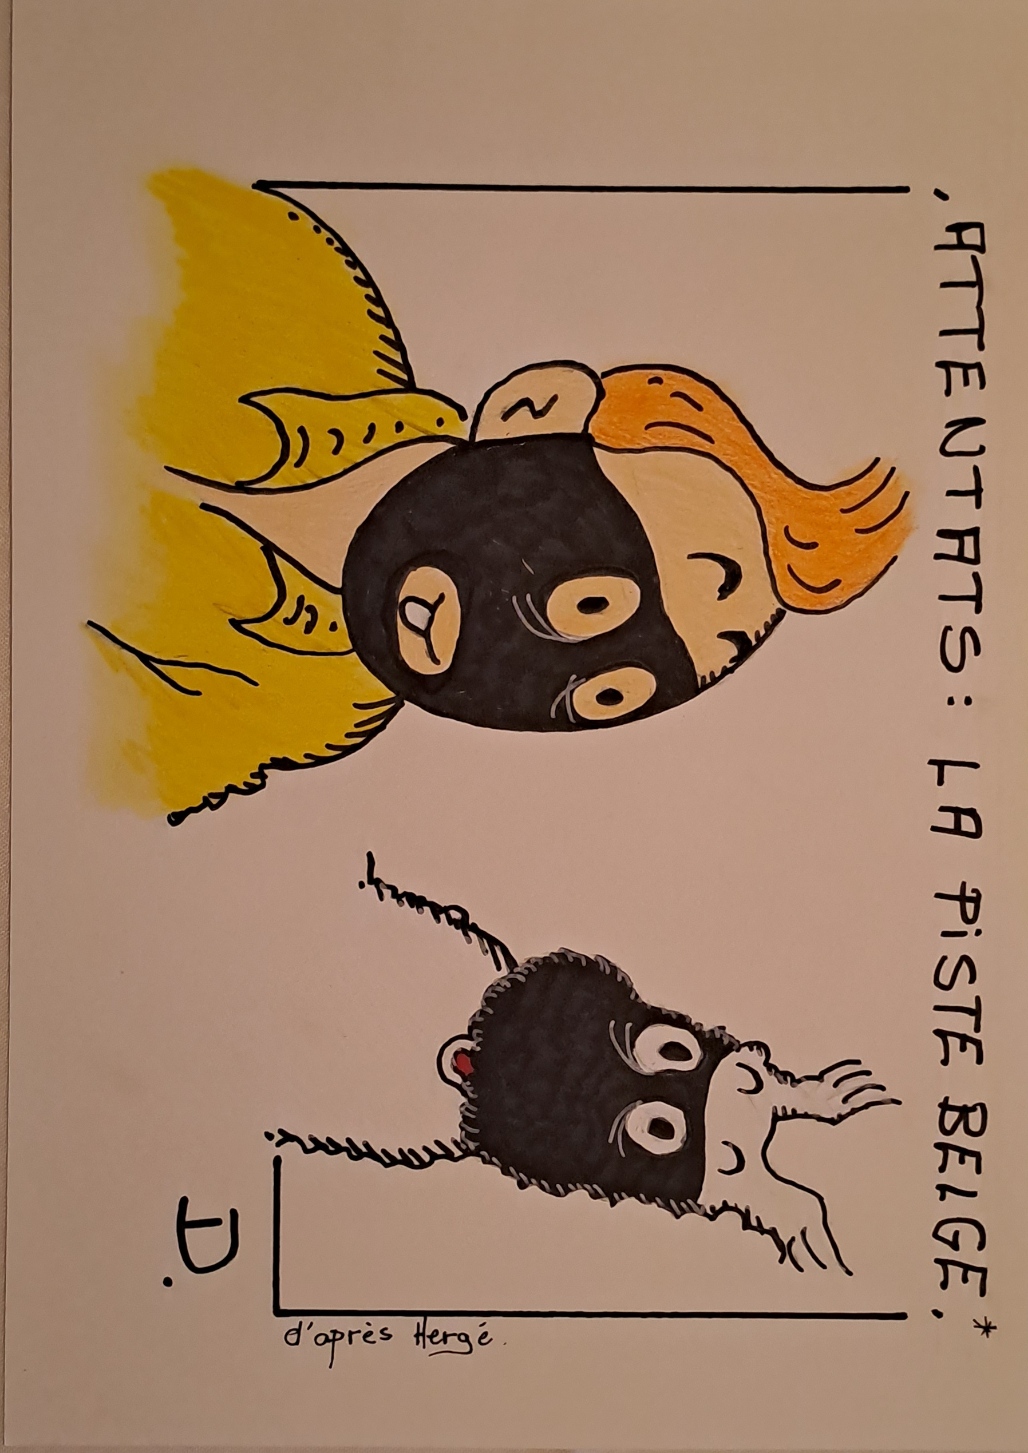 . ATTENTATS: LA PiSTE BELGE. *
d'après Hergé.
D.